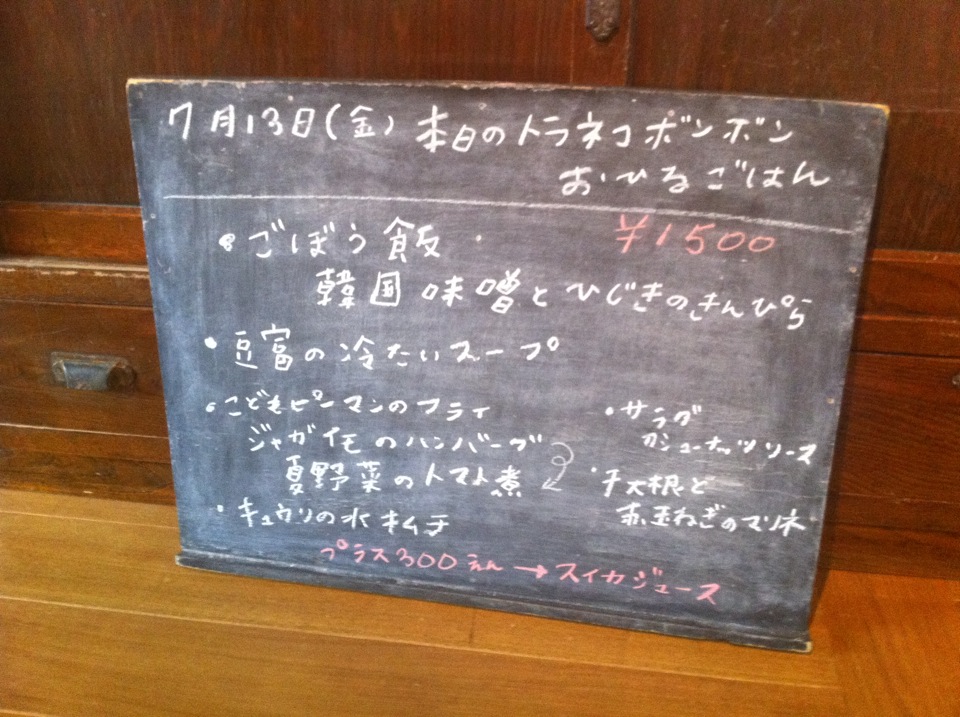 7月13日(金) 本日のトラネコボンボン
おひるごはん
¥1500
・ごぼう飯
韓国味噌とひじきのきんぴら
・豆富の冷たいスープ
・こどもピーマンのフライ
ジャガイモのハンバーグ
夏野菜のトマト煮
・キュウリの水キムチ
・サラダ
カシューナッツソース
・干大根と
赤玉ねぎのマリネ
プラス300えん→スイカジュース